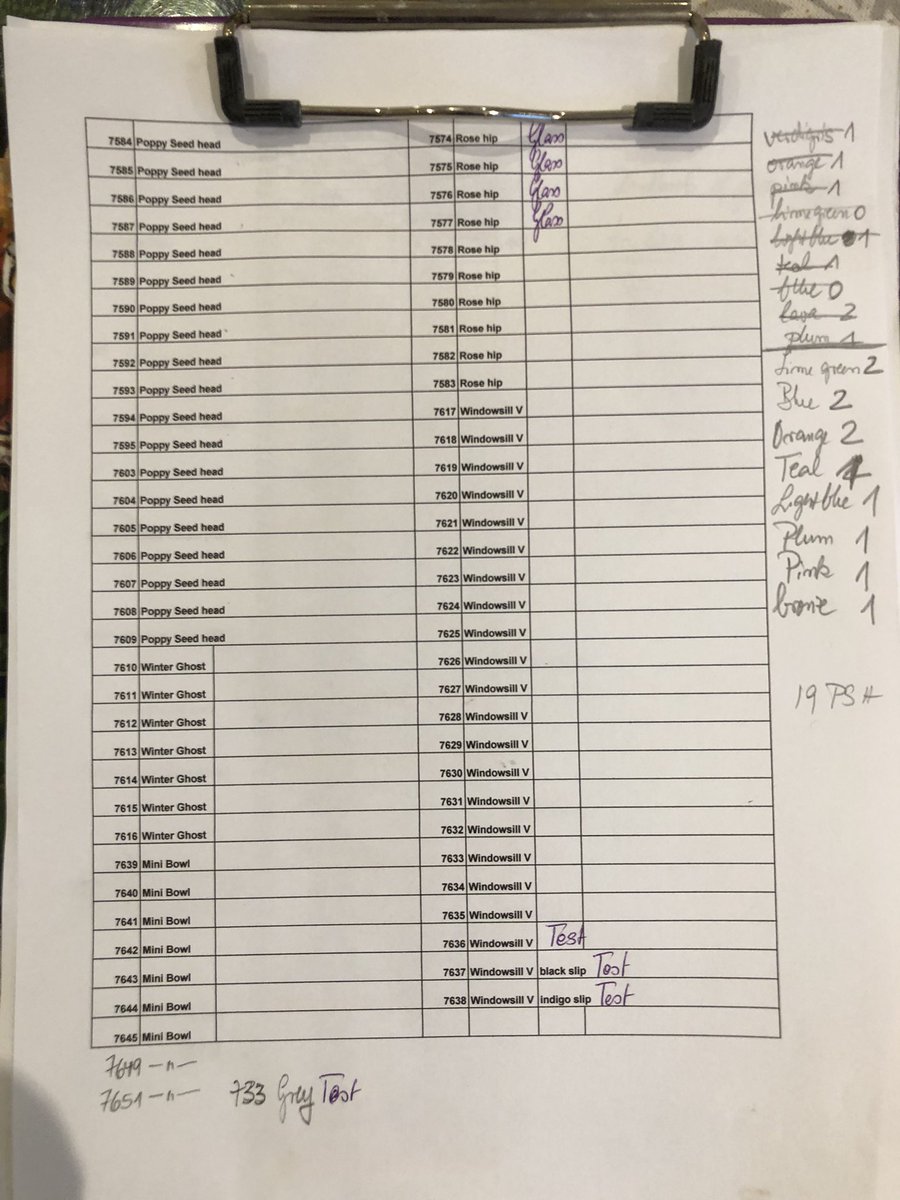 7584 Poppy Seed head 7574 Rose hip Glass
7585 Poppy Seed head 7575 Rose hip Glass
7586 Poppy Seed head 7576 Rose hip Glass
7587 Poppy Seed head 7577 Rose hip Glass
7588 Poppy Seed head 7578 Rose hip
7589 Poppy Seed head 7579 Rose hip
7590 Poppy Seed head 7580 Rose hip
7591 Poppy Seed head 7581 Rose hip
7592 Poppy Seed head 7582 Rose hip
7593 Poppy Seed head 7583 Rose hip
7594 Poppy Seed head 7617 Windowsill V
7595 Poppy Seed head 7618 Windowsill V
7603 Poppy Seed head 7619 Windowsill V
7604 Poppy Seed head 7620 Windowsill V
7605 Poppy Seed head 7621 Windowsill V
7606 Poppy Seed head 7622 Windowsill V
7607 Poppy Seed head 7623 Windowsill V
7608 Poppy Seed head 7624 Windowsill V
7609 Poppy Seed head 7625 Windowsill V
7610 Winter Ghost 7626 Windowsill V
7611 Winter Ghost 7627 Windowsill V
7612 Winter Ghost 7628 Windowsill V
7613 Winter Ghost 7629 Windowsill V
7614 Winter Ghost 7630 Windowsill V
7615 Winter Ghost 7631 Windowsill V
7616 Winter Ghost 7632 Windowsill V
7639 Mini Bowl 7633 Windowsill V
7640 Mini Bowl 7634 Windowsill V
7641 Mini Bowl 7635 Windowsill V
7642 Mini Bowl 7636 Windowsill V Test
7643 Mini Bowl 7637 Windowsill V black slip Test
7644 Mini Bowl 7638 Windowsill V indigo slip Test
7645 Mini Bowl
7649 -n-
7651 -n- 733 Grey Test
verdigris 1
orange 1
pink 1
lime green 0
light blue 1
teal 1
blue 0
lava 2
plum 1
Lime green 2
Blue 2
Orange 2
Teal
Light blue 1
Plum 1
Pink 1
bronze 1
19 PSH